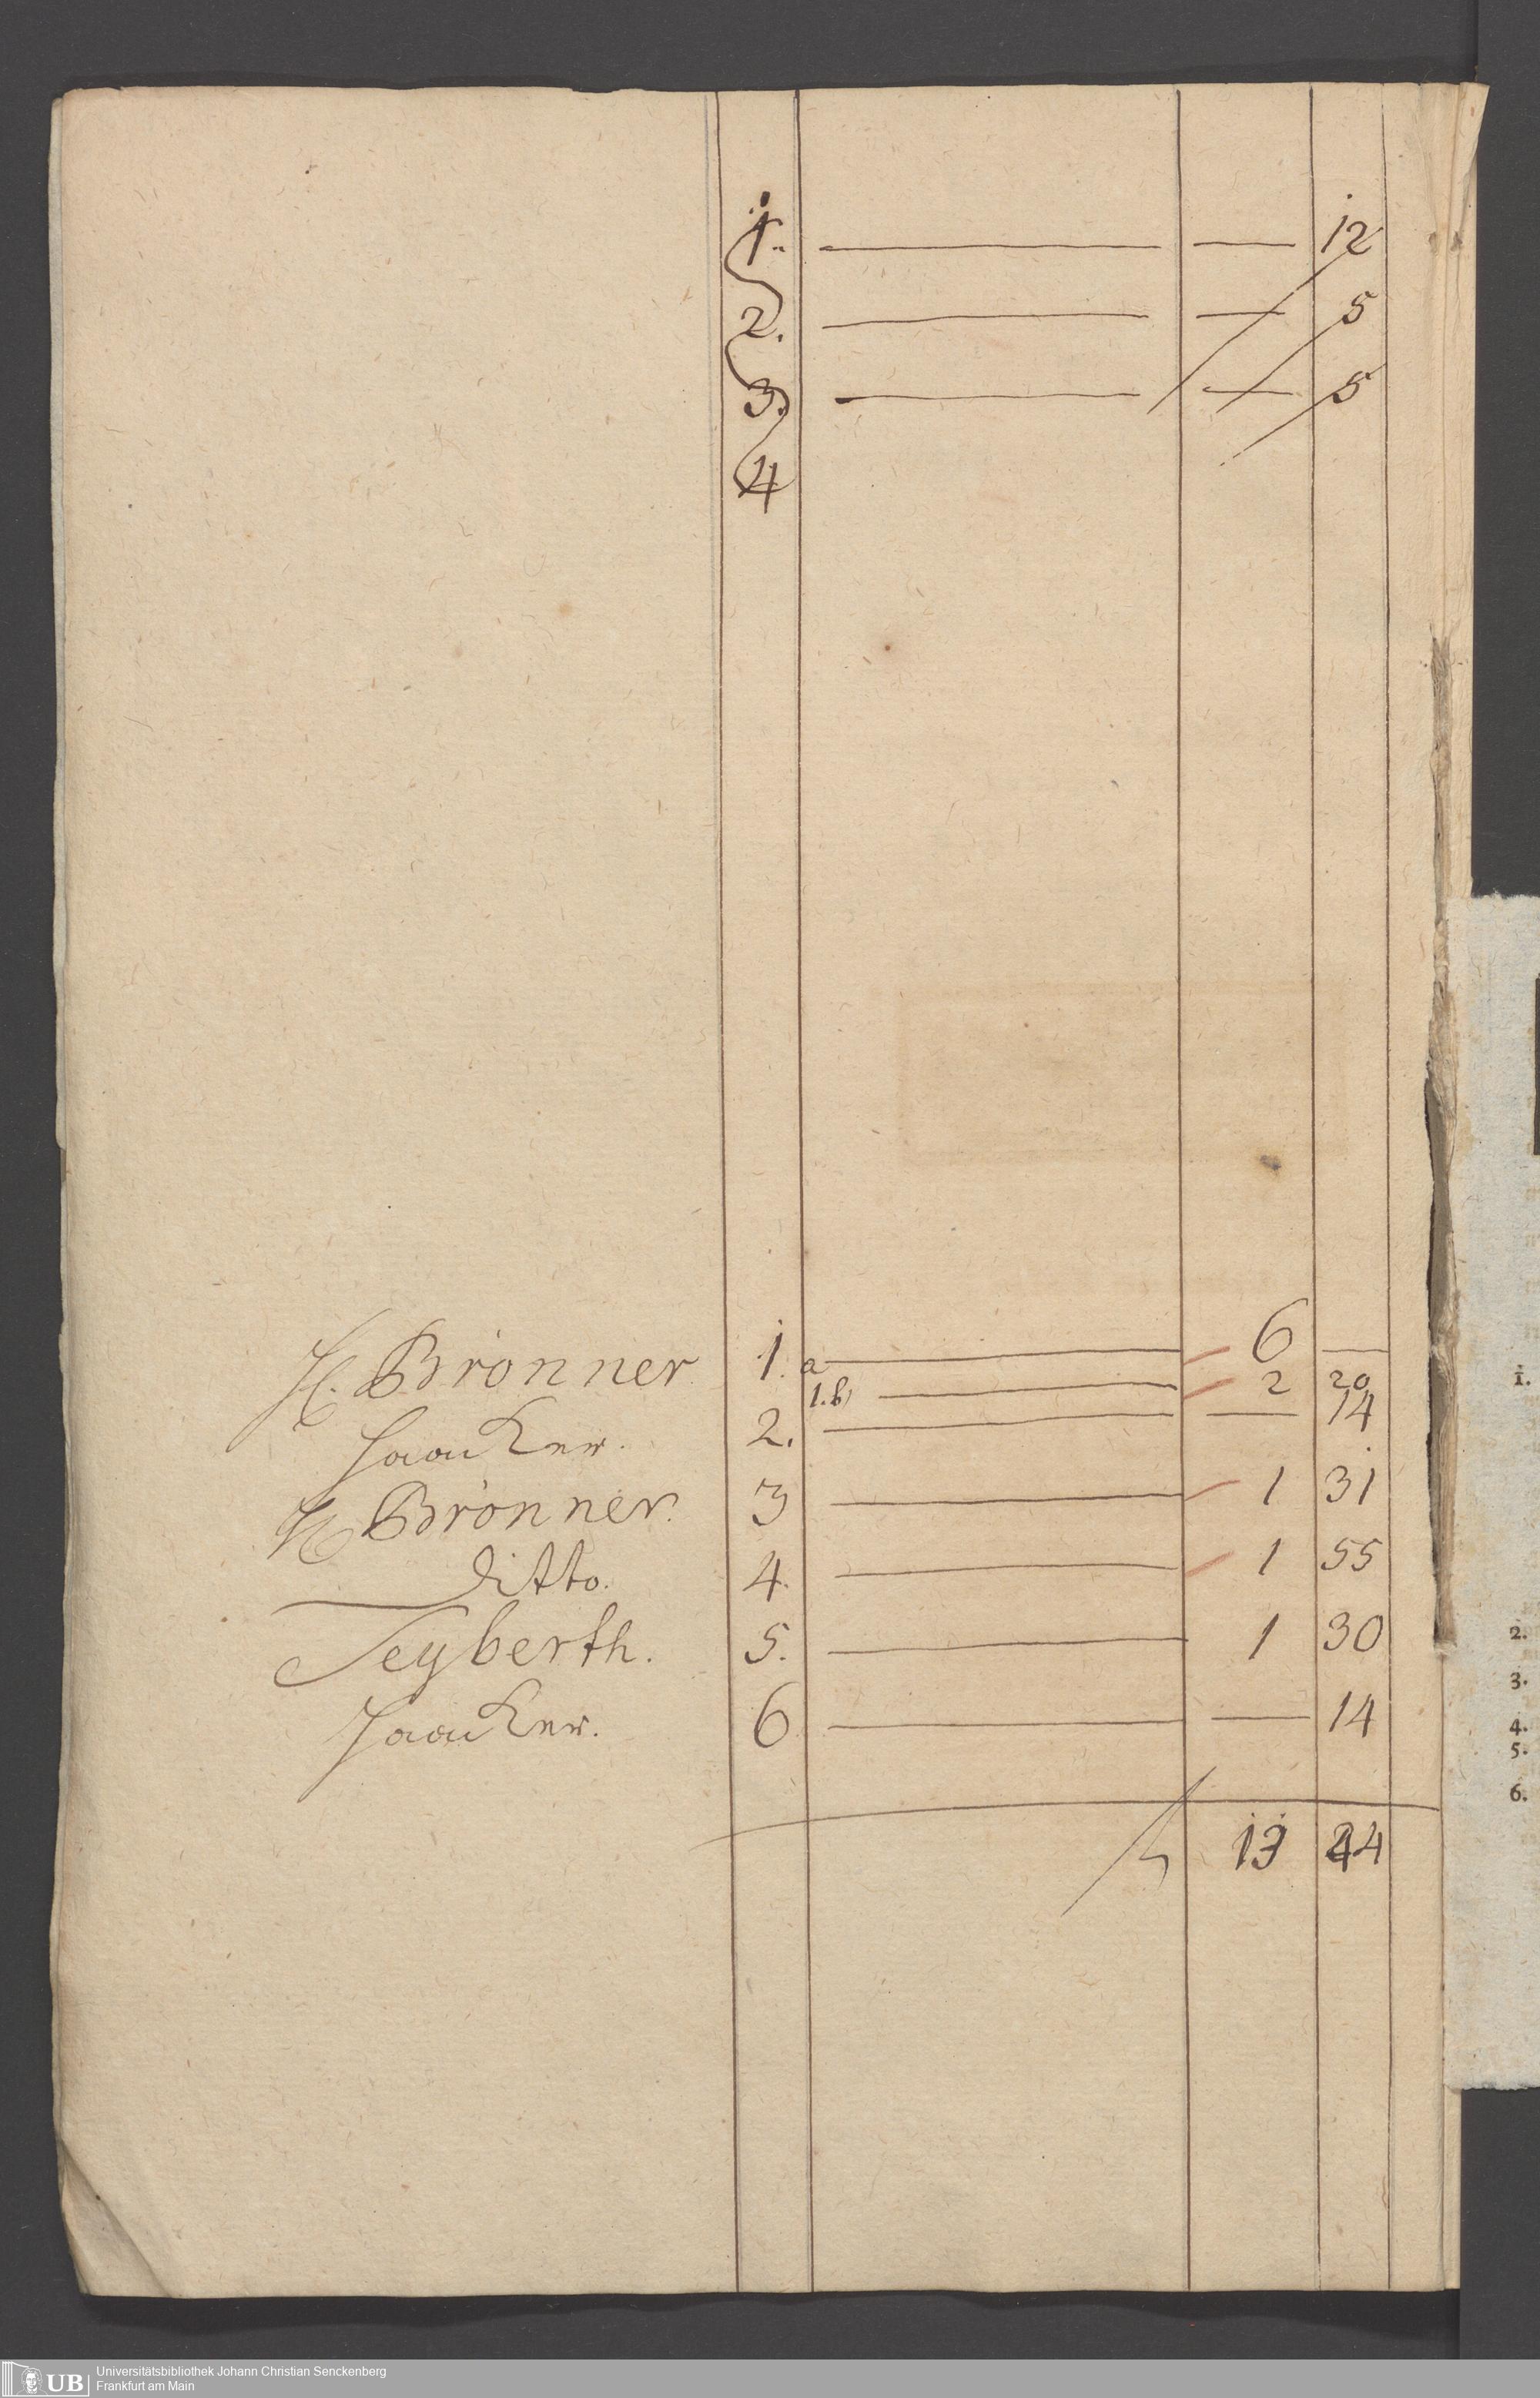 1. — — 12
2. — — 5
3. — — 5
4
H. Brönner. 1. a — 6 —
1.b) — 2 20
2. — — 14
H Brönner. 3 — 1 31
ditto. 4. — 1 55
Seyberth. 5. — 1 30
6 — — 14
13 44
1.
2.
3.
4.
5.
6.
UB
Universitätsbibliothek Johann Christian Senckenberg
Frankfurt am Main